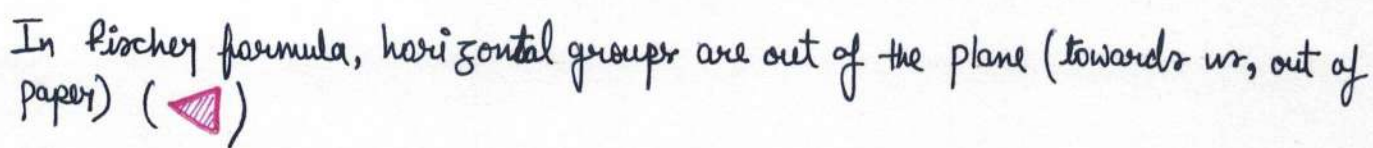 In Fischer formula, horizontal groups are out of the plane (towards us, out of
paper) ( )